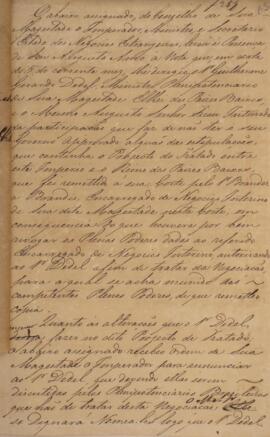 O abaixo assignado, do Conselho de Sua
Magestade o Imperador, Ministro, e Secretario
d'Estado dos Negocios Estrangeiros, levou á Presença
de Seu Augusto Amo a Nota que em data
de 5 do corrente mez lhe dirigio o Sr. Guilherme
Gerardo Dedel, Ministro Plenipotenciario
de Sua Magestade ElRei dos Paizes Baixos,
e o Mesmo Augusto Senhor ficou Inteirado
da participação que faz de não ter o seu
Governo approvado algumas das estipulações,
que continha o Projecto de Tratado entre
este Imperio e o Reino dos Paizes Baixos,
que foi remettido á sua Corte pelo Sr. Brender
a Brandis, Encarregado de Negocios Interino
de Sua dita Magestade nesta Corte, em
consequencia do que houvera por bem
revogar os Plenos Poderes dados ao referido
Encarregado de Negocios Interino, autorisando
ao Sr. Dedel afim de tratar da Negociação,
para a qual se acha munido dos
competentes Plenos Poderes, de que remetteu
copia.
Quanto ás alterações que o Sr. Dedel,
fazer no dito Projecto de Tratado,
o abaixo assignado recebeo ordem de Sua
Magestade o Imperador para annunciar
ao Sr. Dedel que devendo ellas serem
discutidas pelos Plenipotenciarios Brasileiros
que hão de tratar desta Negociação, O Mesmo
Se Dignará Nomeal-os logo que o Sr. Dedel